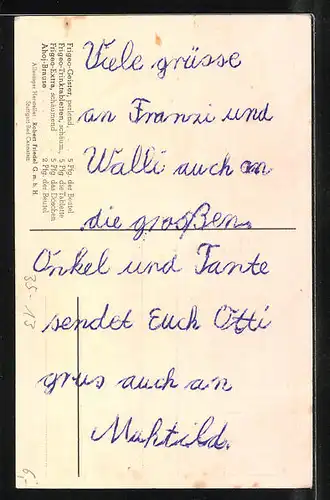 Viele grüsse
an Franzi und
Walli auch an
die großen
Onkel und Tante
sendet Euch Otti
grus auch an
Mahtild.
Frigeo-Geister, perlend, 5 Pfg. der Beutel
Frigeo-Trinktabletten, schäum., 5 Pfg. die Tablette
Frigeo-Extra, schäumend 5 Pfg. das Döschen
Ahoj-Brause 2 Pfg. der Beutel
Alleiniger Hersteller: Robert Friedel G. m. b. H.
Stuttgart-Bad Cannstatt
35-13
6,-